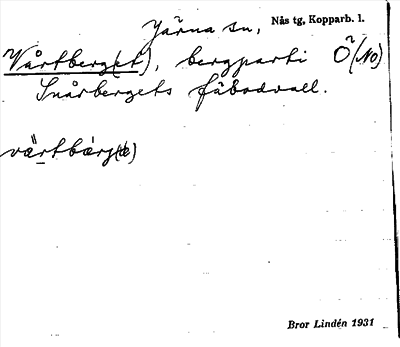 Järna sn, Nås tg, Kopparb. l.
Vårtberg(et), bergparti Ö (No)
Snårbergets fäbodvall.
Bror Lindén 1931